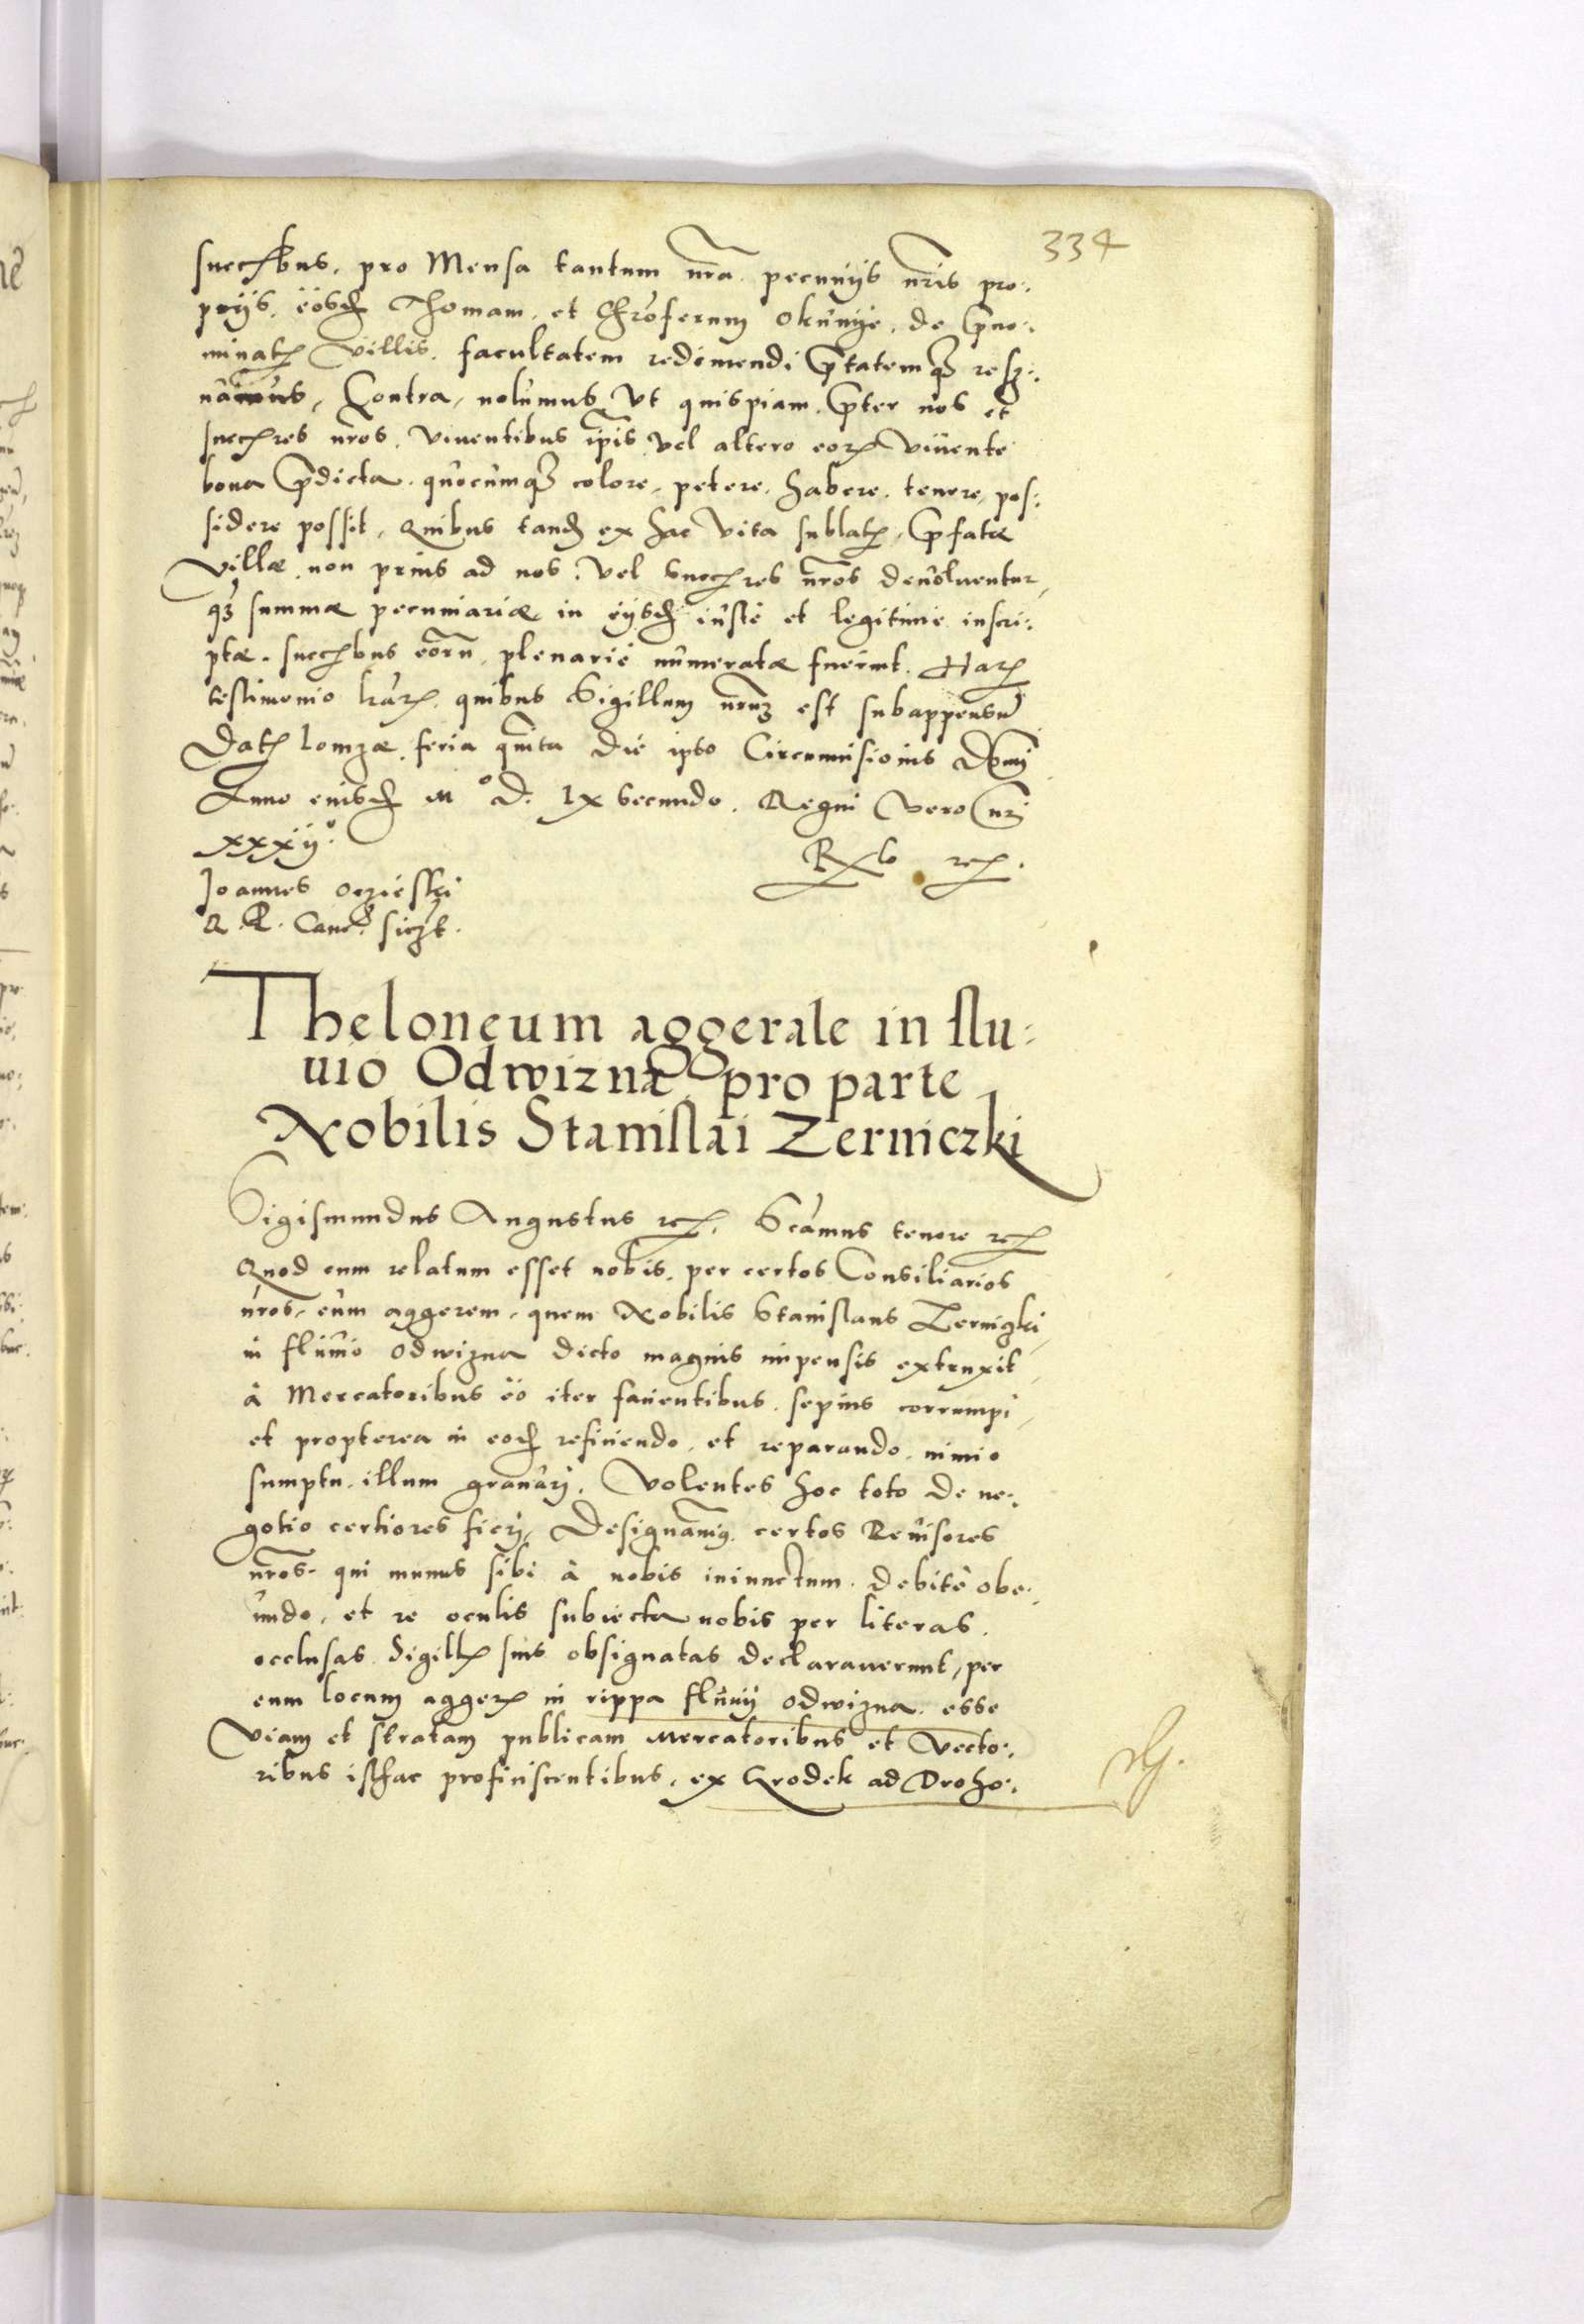 334
succ̃bus, pro Mensa tantum nr̃a pecunijs nr̃is pro:
prijs, eosdẽ Thomam et Chr̃oferum Okunije, de p̃no:
minatis villis, facultatem redimendi p̃tatemq3 reser:
vamus, Contra, nolumus ut quispiam, p̃ter nos et
succ̃res nr̃os, viuentibus ip̃is vel altero eorũ viuente
bona p̃dicta quocumq3 colore, petere, habere, tenere, pos:
sidere possit, Quibus tandẽ ex hac vita sublatis, p̃fatæ
villæ, non prius ad nos, vel succ̃res nr̃os deuoluentur,
q3 summæ pecuniariæ in eijsdẽ iuste et legitime inscri:
ptæ, succ̃bus eorũ, plenarie numeratæ fuerint. Harũ
testimonio lr̃arũ, quibus Sigillum nr̃m est subappensũ
Datũ Lomzæ, feria quinta die ipso Circumcisionis Dñi
Anno eiusdẽ M° D. lx secundo. Regni vero nr̃i
xxxij°.
Rx l̃o rc̃.
Joannes Oczieski
R. P. Canc̃. sſzt.
Theloneum aggerale in flu:
uio Odwizna pro parte
Nobilis Stanislai Zerniczki
Sigismundus Augustus rc̃. Sc̃amus tenore rc̃
Quod cum relatum esset nobis, per certos Consiliarios
nr̃os, eum aggerem, quem Nobilis Stanislaus Zernizki,
in fluuio Odwizna dicto magnis impensis extruxit,
à Mercatoribus eo iter facientibus, sepius corrumpi,
et propterea in eodẽ reficiendo, et reparando, nimio
sumptu illum grauari, Volentes hoc toto de ne:
gotio certiores fieri, Designauimus certos Reuisores
nr̃os, qui munus sibi à nobis iniunctum, debite obe:
undo, et re oculis subiecta nobis per literas
occlusas Sigillis suis obsignatas declarauerunt, per
eum locum aggeris in rippa fluuij Odwizna esse
viam et stratam publicam Mercatoribus et vecto:
ribus isthac proficiscentibus, ex Grodek ad Droho: